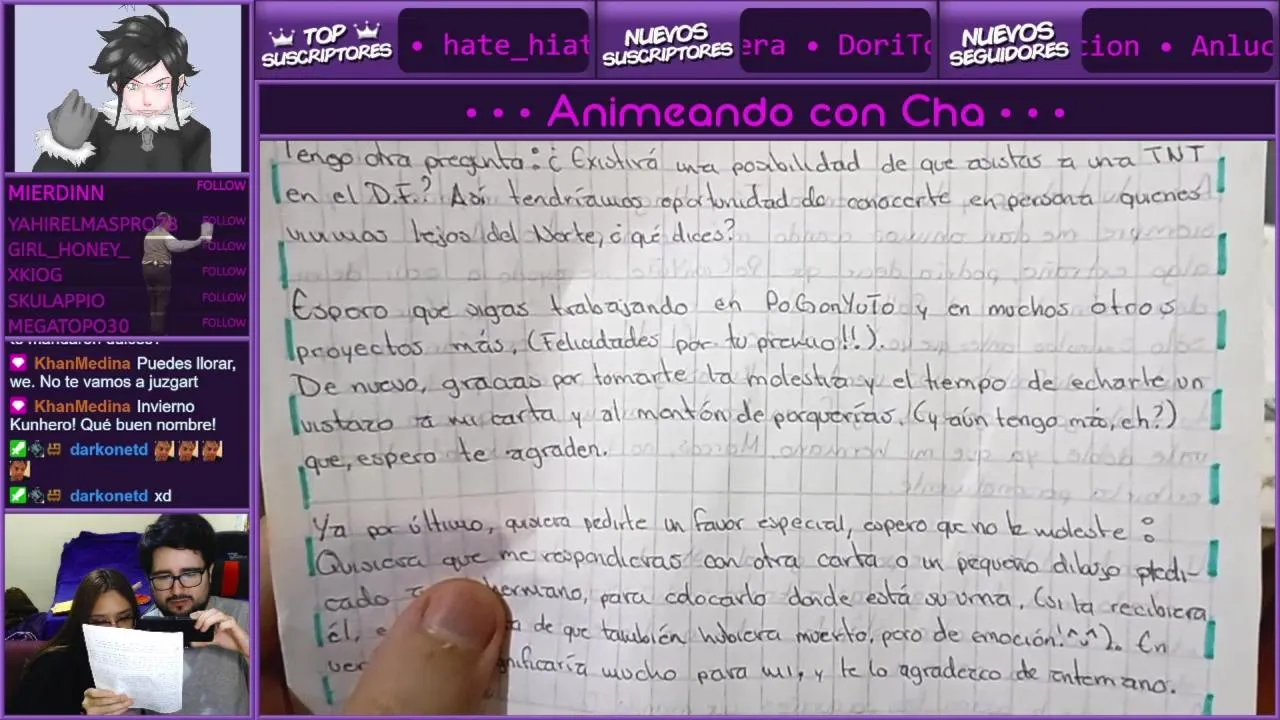 TOP SUSCRIPTORES
• hate_hiat
NUEVOS SUSCRIPTORES
era • DoriTo
NUEVOS SEGUIDORES
cion • Anluc
••• Animeando con Cha •••
MIERDINN FOLLOW
YAHIRELMASPRO78 FOLLOW
GIRL_HONEY_ FOLLOW
XKIOG FOLLOW
SKULAPPIO FOLLOW
MEGATOPO30 FOLLOW
KhanMedina Puedes llorar,
we. No te vamos a juzgart
KhanMedina Invierno
Kunhero! Qué buen nombre!
darkonetd
darkonetd xd
Tengo otra pregunta: ¿Existirá una posibilidad de que asistas a una TNT
en el D.F.? Así tendríamos oportunidad de conocerte en persona quienes
vivimos lejos del Norte, ¿qué dices?
Espero que sigas trabajando en PoGonYuTo y en muchos otros
proyectos más, (Felicidades por tu premio!!).
De nuevo, gracias por tomarte la molestia y el tiempo de echarle un
vistazo a mi carta y al montón de porquerías. (y aún tengo más, eh?)
que, espero te agraden.
Ya por último, quisiera pedirte un favor especial, espero que no te moleste:
Quisiera que me respondieras con otra carta o un pequeño dibujo dedi-
cado hermano, para colocarlo donde está su urna. (si la recibiera
él, de que también hubiera muerto, pero de emoción!^^). En
significaría mucho para mi, y te lo agradezco de antemano.